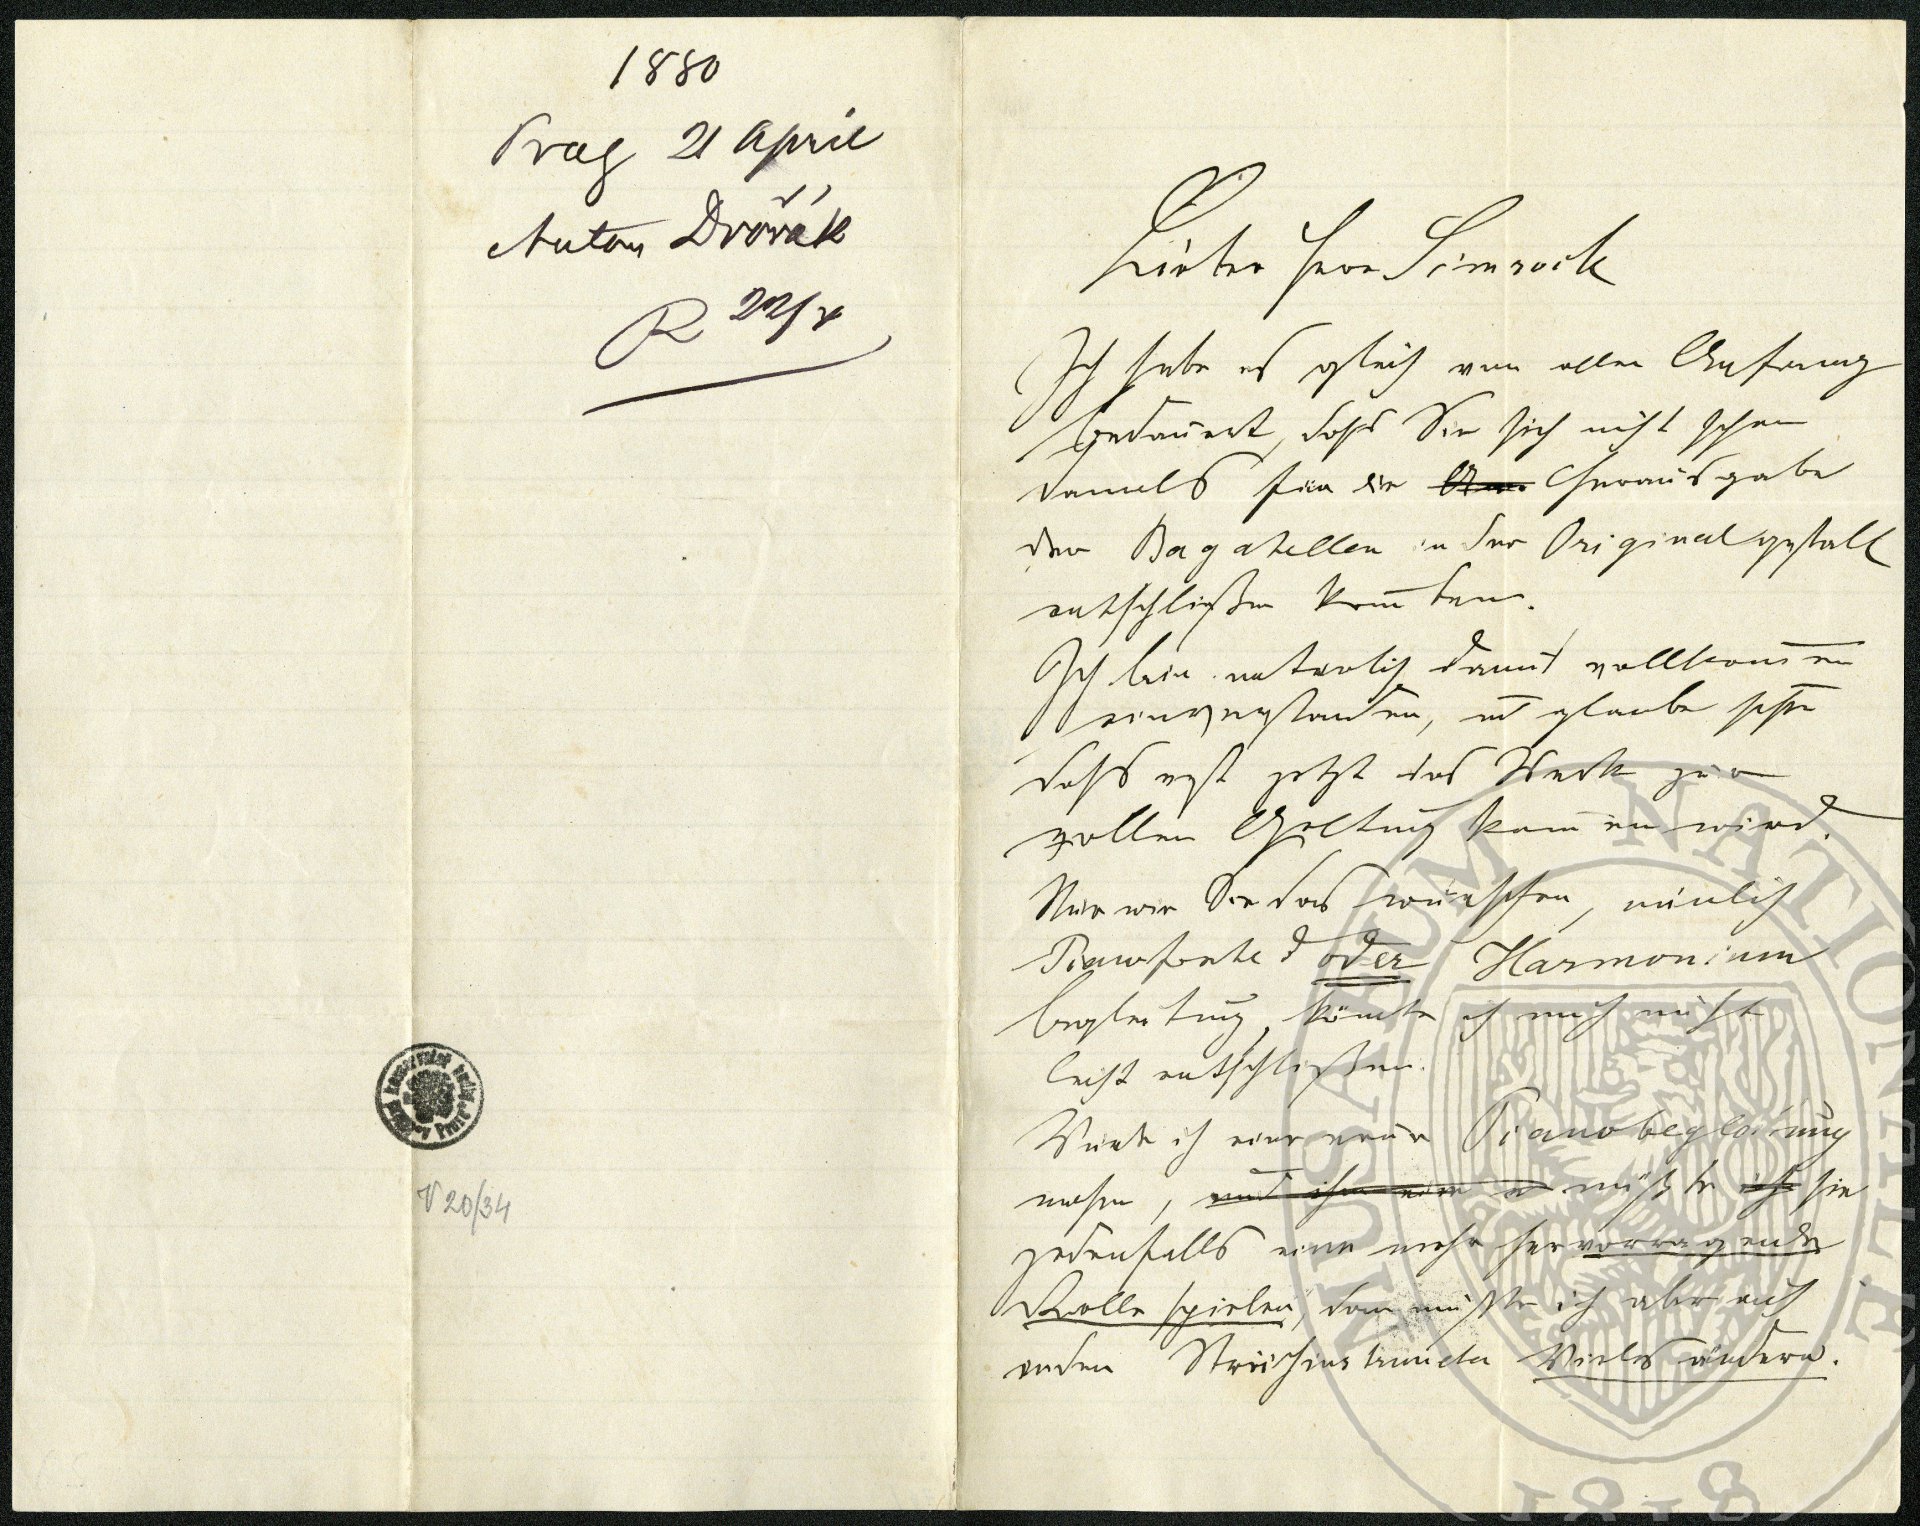 1880
Prag 21 April
Anton Dvořák
R 22/4
V 20/34
Lieber Herr Simrock
Ich habe es gleich vom allen Anfang
bedauert, dass Sie sich nicht schon
damals für die Herausgabe
der Bagatellen in der Originalgestalt
entschließen konnten.
Ich bin natürlich damit vollkommen
einverstanden, und glaube
dass erst jetzt das Werk zur
vollen Geltung kommen wird.
Nur wie Sie das wünschen, nämlich
Pianoforte oder Harmonium
begleitung, könnte ich mich nicht
leicht entschließen.
Würde ich eine neue Pianobegleitung
machen, müßte sie
jedenfalls eine mehr hervorragende
Rolle spielen, dann müsste ich aber auch
in den Streichinstrumenten Vieles ändern.
MUSAEUM NATIONALE
1818